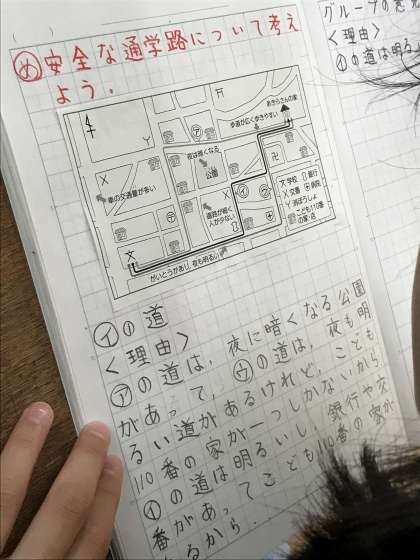 め 安全な通学路について考え
よう.
あきらさんの家
歩道が広く歩きやすい
夜は暗くなる
公園
車の交通量が多い
道路が狭く
人が少ない
文 学校
銀行
X 交番
病院
Y 消ぼうしょ
こども110番
の家・店
がいとうがあり、夜も明るい
イの道
<理由>
アの道は、夜に暗くなる公園
があって、ウの道は、夜も明
るい道があるけれど、こども
110番の家が一つしかないから.
イの道は明るいし、銀行や交
番があってこども110番の家が
あるから.
グループの意見
<理由>
イの道は明る